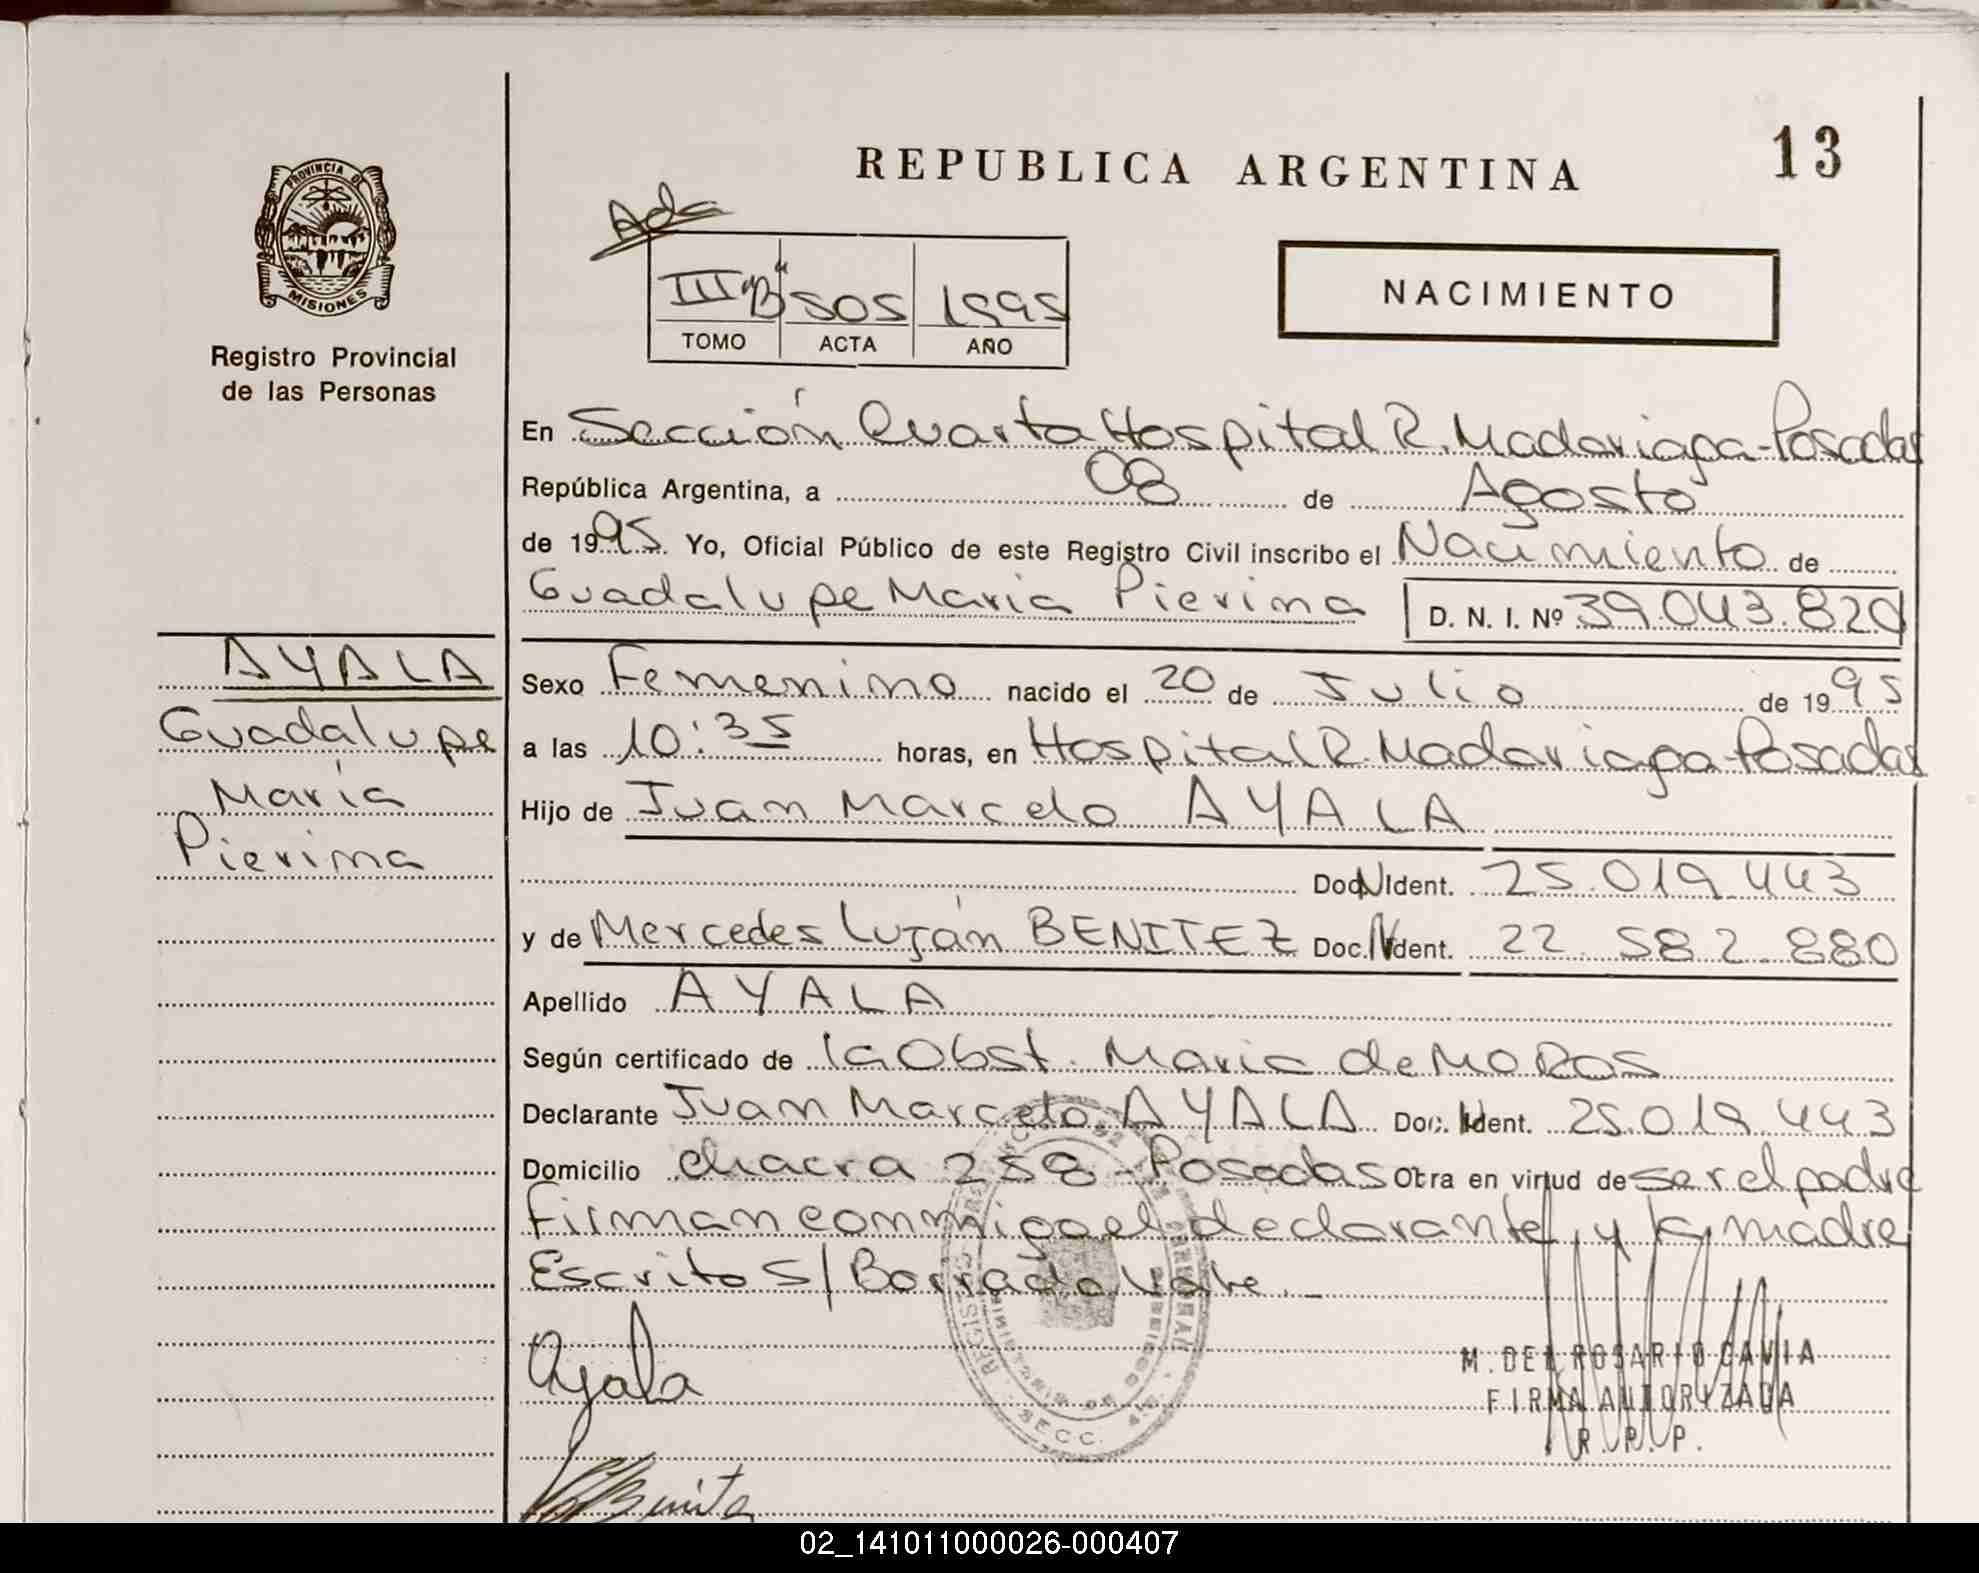 REPUBLICA ARGENTINA
13
PROVINCIA DE
MISIONES
Registro Provincial
de las Personas
Ada
III "B" 505 1995
TOMO ACTA AÑO
NACIMIENTO
En Sección Cuarta Hospital R. Madariaga-Posadas
República Argentina, a 08 de Agosto
de 1995. Yo, Oficial Público de este Registro Civil inscribo el Nacimiento de
Guadalupe Maria Pierina D. N. I. Nº 39.043.820
AYALA
Guadalupe
María
Pierina
Sexo Femenino nacido el 20 de Julio de 1995
a las 10:35 horas, en Hospital R. Madariaga-Posadas
Hijo de Juan Marcelo AYALA
Doc. N Ident. 25.019.443
y de Mercedes Luján BENITEZ Doc. N Ident. 22.582.880
Apellido AYALA
Según certificado de la Obst. Maria de MOROS
Declarante Juan Marcelo AYALA Doc. N Ident. 25.019.443
Domicilio chacra 258 - Posadas Otra en virtud de ser el padre
Firman conmigo el declarante y la madre
Escrito S/ Borrado Vale. _
Ayala
M. DEL ROSARIO CAVIA
FIRMA AUTORIZADA
R. P. P.
SECC.
Benitez
02_141011000026-000407